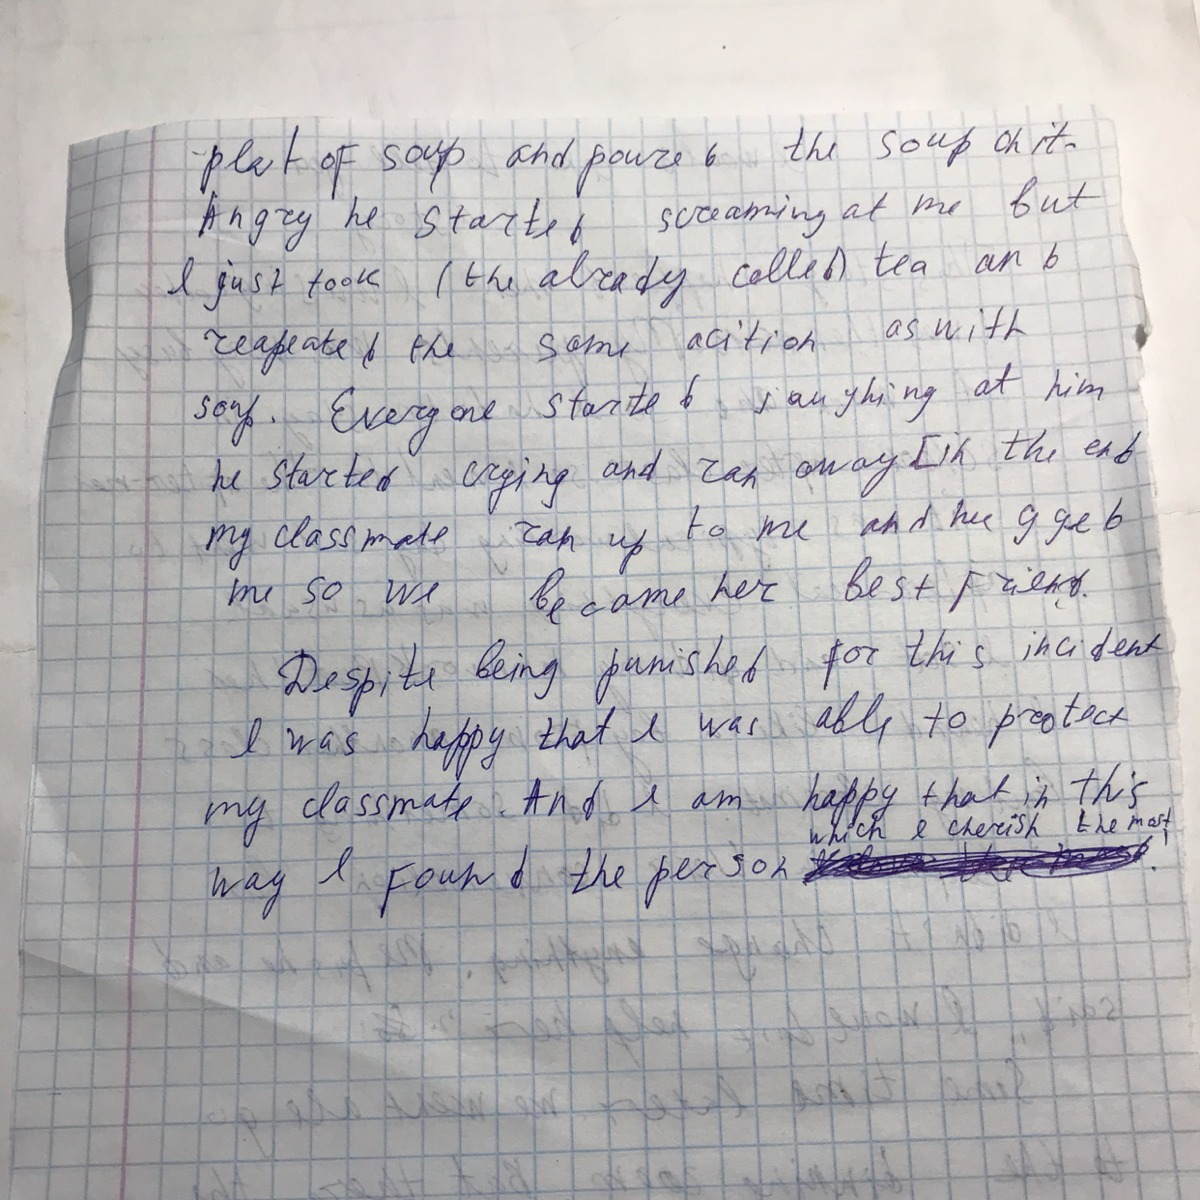 plat of soup and poured the soup on it.
Angry he started screaming at me but
I just took (the already colled) tea and
reapeated the same acition as with
soup. Everyone started laughing at him
he started crying and ran away [in the end
my classmate ran up to me and hugged
me so we became her best friend.
Despite being punished for this incident
I was happy that I was able to protect
my classmate. And I am happy that in this
which I cherish the most!
way I found the person
I didn't change anything. me and
said, I help her
Some time later we went
to the room but then